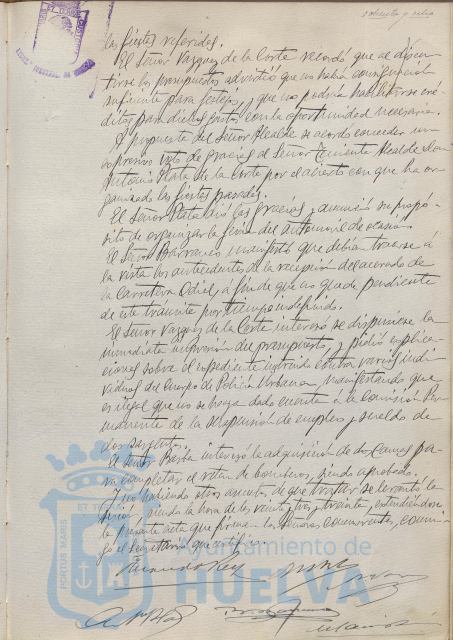 las fiestas referidas.
El Señor Vazquez de la Corte recordó que al discu-
tirse los presupuestos advirtió que no había consignación
suficiente para festejos, y que no podrían habilitarse cré-
ditos para dichos gastos con la oportunidad necesaria.
A propuesta del Señor Alcalde se acordó conceder un
expresivo voto de gracias al Señor Teniente Alcalde Don
Antonio Plata de la Corte por el acierto con que ha or-
ganizado las fiestas pasadas.
El Señor Plata dió las gracias y anunció su propó-
sito de organizar la feria del Automovil de ocasión.
El Señor Barranco manifestó que debía traerse á
la vista los antecedentes de la recepción del acerado de
la Carretera Odiel, á fin de que no quede pendiente
de este trámite por tiempo indefinido.
El Señor Vazquez de la Corte interesó se dispusiese la
inmediata del presupuesto, y pidió explica-
ciones sobre el expediente instruido contra varios indi-
viduos del Cuerpo de Policía Urbana, manifestando que
es ilegal que no se haya dado cuenta á la Comisión Per-
manente de la suspensión de empleo y sueldo de
dos sargentos.
El Señor Barba interesó la adquisición de dos Camas pa-
ra completar el retén de bomberos, siendo aprobado.
Y no habiendo otros asuntos de que tratar se levantó la
sesión, siendo la hora de las veinte y tres y treinta, extendiéndose
la presente acta que firman los Señores concurrentes, conmi-
go el secretario que certifico.
PORTUS MARIS
ET TERRÆ
Ayuntamiento de
HUELVA